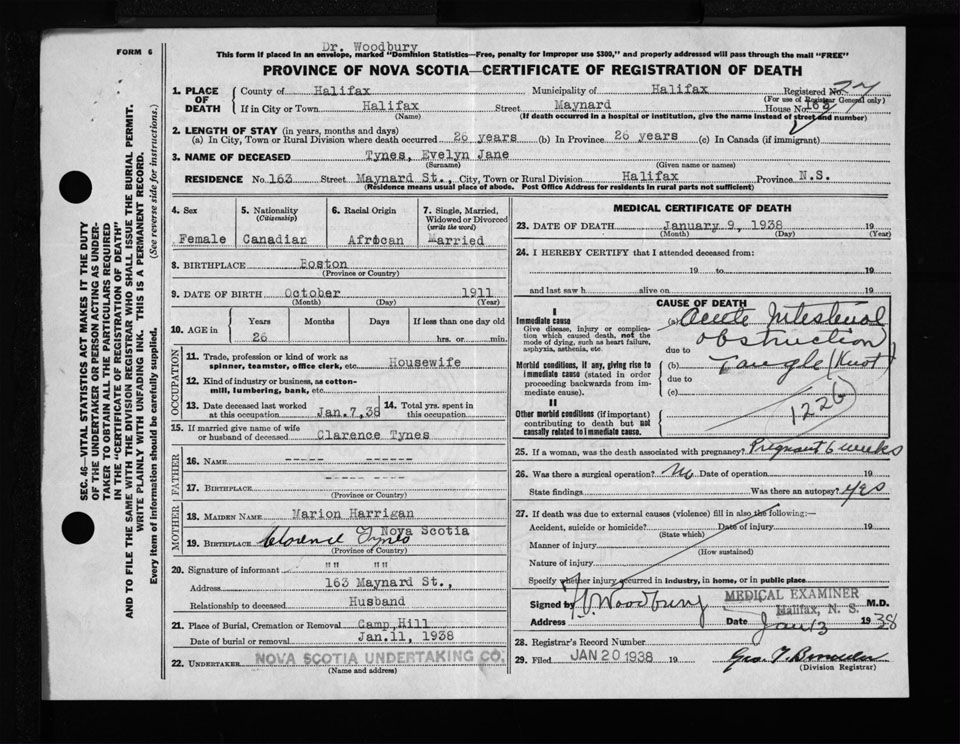 FORM 6
Dr. Woodbury
This form if placed in an envelope, marked "Dominion Statistics—Free, penalty for improper use $300," and properly addressed will pass through the mail "FREE"
PROVINCE OF NOVA SCOTIA—CERTIFICATE OF REGISTRATION OF DEATH
1. PLACE OF DEATH
County of Halifax Municipality of Halifax Registered No. 27
(For use of Registrar General only)
If in City or Town Halifax Street Maynard House No. 163
(Name) (If death occurred in a hospital or institution, give the name instead of street and number)
2. LENGTH OF STAY (in years, months and days)
(a) In City, Town or Rural Division where death occurred 26 years (b) In Province 26 years (c) In Canada (if immigrant)
3. NAME OF DECEASED Tynes, Evelyn Jane
(Surname) (Given name or names)
RESIDENCE No. 163 Street Maynard St., City, Town or Rural Division Halifax Province N.S.
(Residence means usual place of abode. Post Office Address for residents in rural parts not sufficient)
4. Sex Female
5. Nationality (Citizenship) Canadian
6. Racial Origin African
7. Single, Married, Widowed or Divorced (write the word) Married
8. BIRTHPLACE Boston
(Province or Country)
9. DATE OF BIRTH October 1911
(Month) (Day) (Year)
10. AGE in Years Months Days If less than one day old
26 hrs. or min.
OCCUPATION
11. Trade, profession or kind of work as spinner, teamster, office clerk, etc. Housewife
12. Kind of industry or business, as cotton-mill, lumbering, bank, etc.
13. Date deceased last worked at this occupation Jan.7,38
14. Total yrs. spent in this occupation
15. If married give name of wife or husband of deceased Clarence Tynes
FATHER
16. NAME ----- -----
17. BIRTHPLACE ----- ----
(Province or Country)
MOTHER
18. MAIDEN NAME Marion Harrigan
19. BIRTHPLACE Nova Scotia
(Province or Country)
Clarence Tynes
20. Signature of informant "" " "" "
Address 163 Maynard St.,
Relationship to deceased Husband
21. Place of Burial, Cremation or Removal Camp Hill
Date of burial or removal Jan.11, 1938
22. UNDERTAKER NOVA SCOTIA UNDERTAKING CO.
(Name and address)
MEDICAL CERTIFICATE OF DEATH
23. DATE OF DEATH January 9, 1938 19
(Month) (Day) (Year)
24. I HEREBY CERTIFY that I attended deceased from:
19 to 19
and last saw h alive on 19
CAUSE OF DEATH
I
Immediate cause
Give disease, injury or complication which caused death, not the mode of dying, such as heart failure, asphyxia, asthenia, etc.
(a) Acute Intestinal obstruction
due to
Morbid conditions, if any, giving rise to immediate cause (stated in order proceeding backwards from immediate cause).
(b) Tangle (Knot)
due to
(c)
II
Other morbid conditions (if important) contributing to death but not causally related to immediate cause.
122b
25. If a woman, was the death associated with pregnancy? Pregnant 6 weeks
26. Was there a surgical operation? No Date of operation 19
State findings Was there an autopsy? yes
27. If death was due to external causes (violence) fill in also the following:—
Accident, suicide or homicide? Date of injury 19
(State which)
Manner of injury
(How sustained)
Nature of injury
Specify whether injury occurred in industry, in home, or in public place
Signed by Woodbury MEDICAL EXAMINER M.D.
Halifax, N. S.
Address Date Jan 13 1938
28. Registrar's Record Number
29. Filed JAN 20 1938 19
(Division Registrar)
SEC. 46—VITAL STATISTICS ACT MAKES IT THE DUTY
OF THE UNDERTAKER OR PERSON ACTING AS UNDER-
TAKER TO OBTAIN ALL THE PARTICULARS REQUIRED
IN THE "CERTIFICATE OF REGISTRATION OF DEATH"
AND TO FILE THE SAME WITH THE DIVISION REGISTRAR WHO SHALL ISSUE THE BURIAL PERMIT.
WRITE PLAINLY WITH UNFADING INK. THIS IS A PERMANENT RECORD.
Every item of information should be carefully supplied. (See reverse side for instructions.)